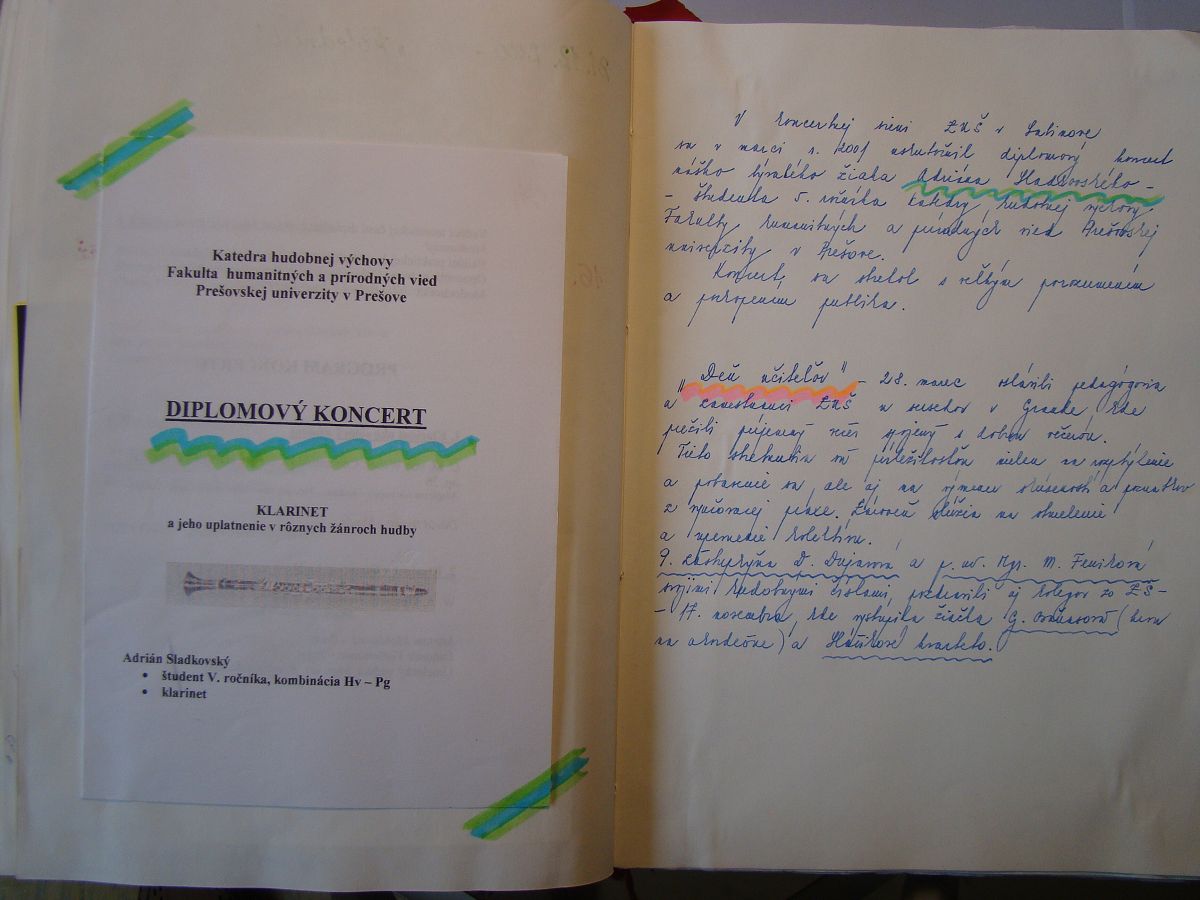 Katedra hudobnej výchovy
Fakulta humanitných a prírodných vied
Prešovskej univerzity v Prešove
DIPLOMOVÝ KONCERT
KLARINET
a jeho uplatnenie v rôznych žánroch hudby
Adrián Sladkovský
• študent V. ročníka, kombinácia Hv – Pg
• klarinet
V koncertnej sieni ZUŠ v Sabinove
sa v marci r. 2001 uskutočnil diplomový koncert
nášho bývalého žiaka Adriána Sladkovského -
- študenta 5. ročníka Katedry hudobnej výchovy
Fakulty humanitných a prírodných vied Prešovskej
univerzity v Prešove.
Koncert sa stretol s veľkým porozumením
a pochopením publika.
"Deň učiteľov" - 28. marec oslávili pedagógovia
a zamestnanci ZUŠ v Grande, kde
prežili príjemný večer spojený s dobrou večerou.
Tieto stretnutia sú príležitosťou nielen na rozptýlenie
a pobavenie sa, ale aj na výmenu skúseností a poznatkov
z vyučovacej praxe. Zároveň slúžia na stmelenie
a upevnenie kolektívu.
9. zástupkyňa D. Dujavová a p. uč. Mgr. M. Feniková
svojimi hudobnými číslami pozdravili aj kolegov zo ZŠ -
- 17. novembra, kde vystúpila žiačka G. (hra
na akordeóne) a kvarteto.